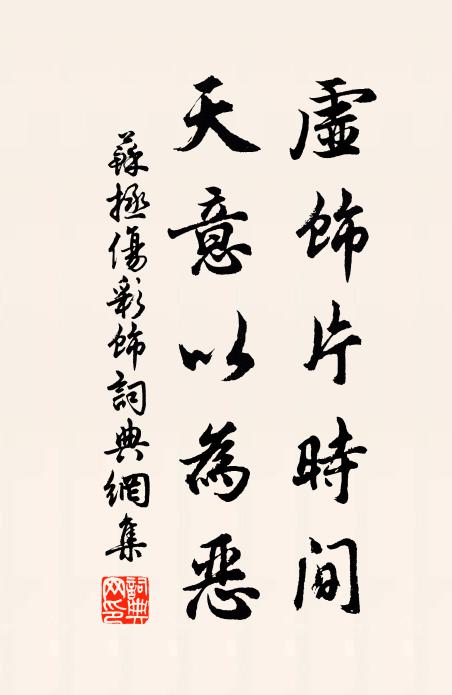 虛飾片時間
天意以為惡
蘇拯傷彩飾詞典網集
詞典網印